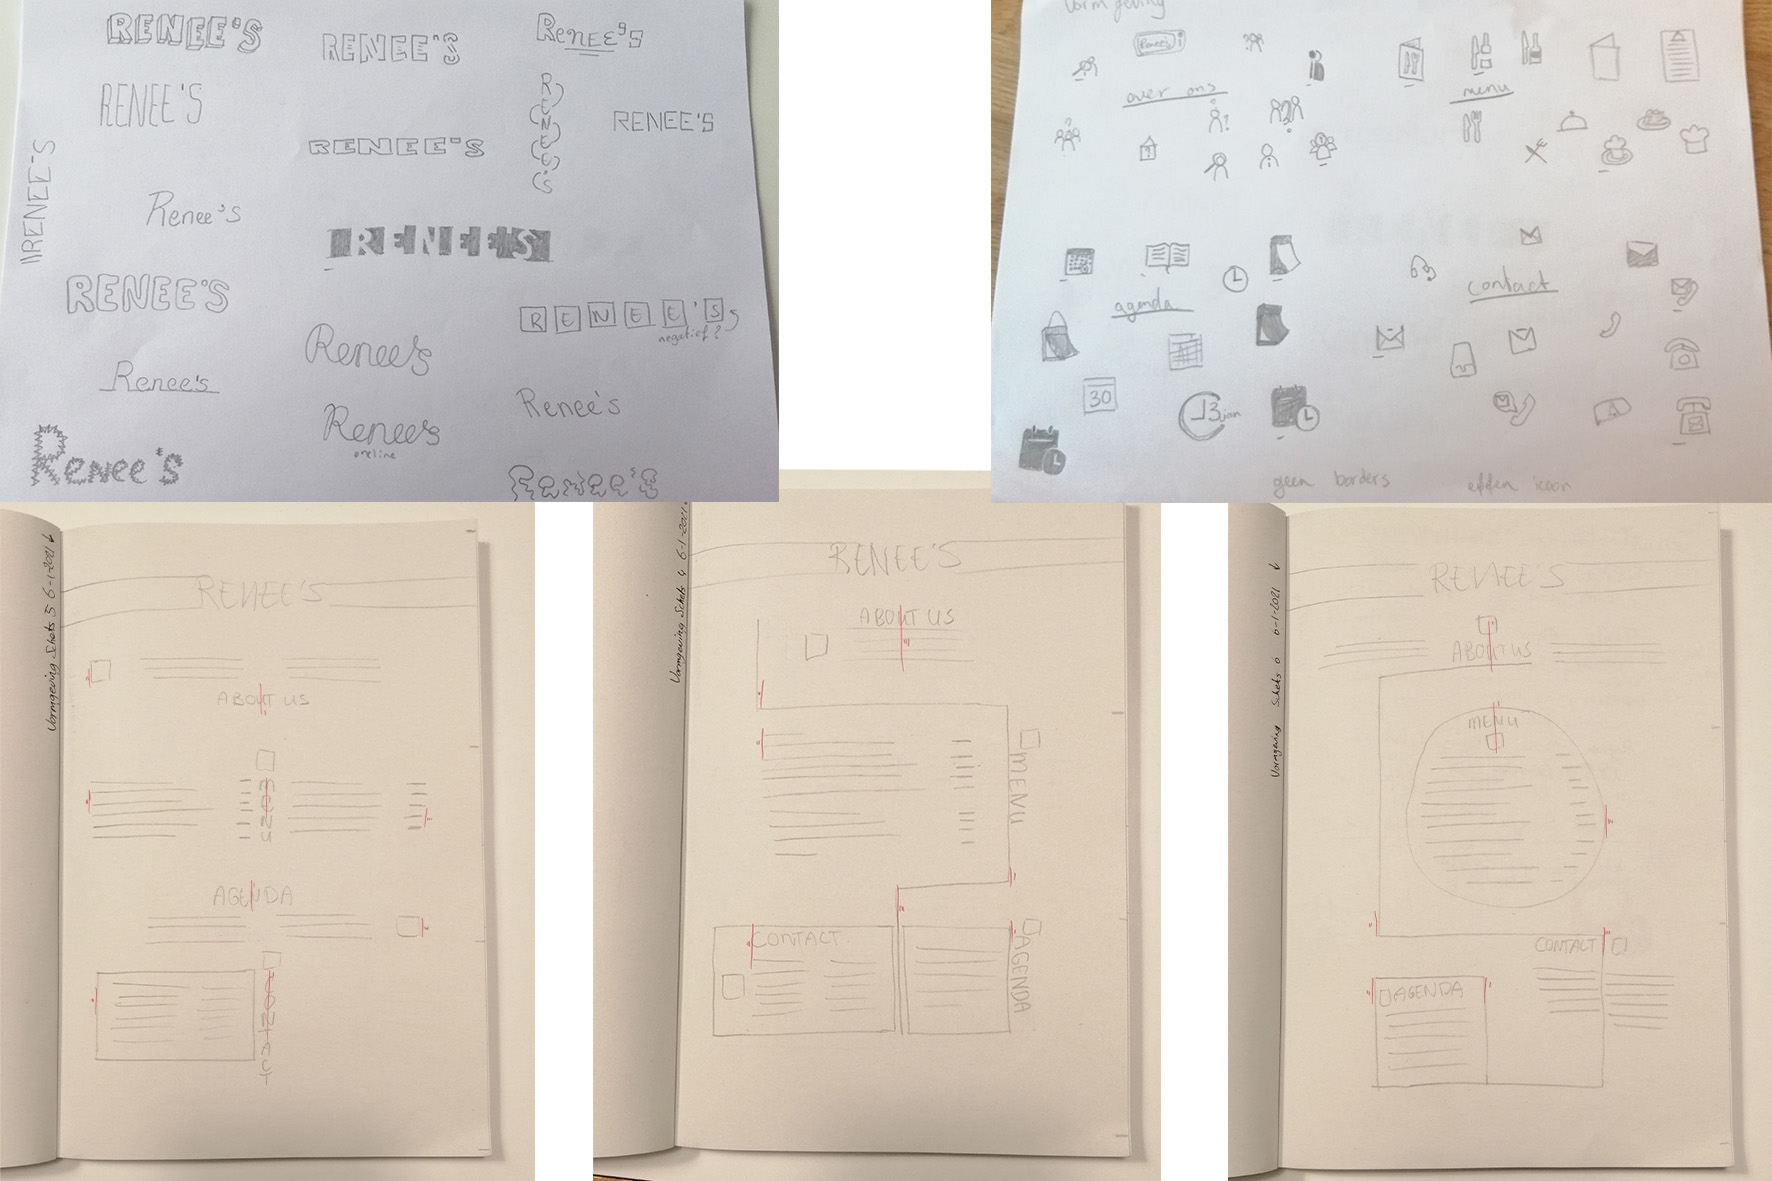 RENEE'S
RENEE'S
RENEE'S
RENEE'S
RENEE'S
RENEE'S
RENEE'S
RENEE'S
Renee's
RENEE'S
RENEE'S
RENEE'S
negatief?
Renee's
Renee's
Renee's
Renee's
oneline
Renee's
Renee's
Vormgeving
Renee's
over ons
menu
agenda
contact
30
13 jan
geen borders
effen icoon
Vormgeving Schets 5 6-1-2021
RENEE'S
ABOUT US
MENU
AGENDA
CONTACT
Vormgeving Schets 4 6-1-2021
RENEE'S
ABOUT US
MENU
CONTACT
AGENDA
Vormgeving Schets 6 6-1-2021
RENEE'S
ABOUT US
MENU
CONTACT
AGENDA